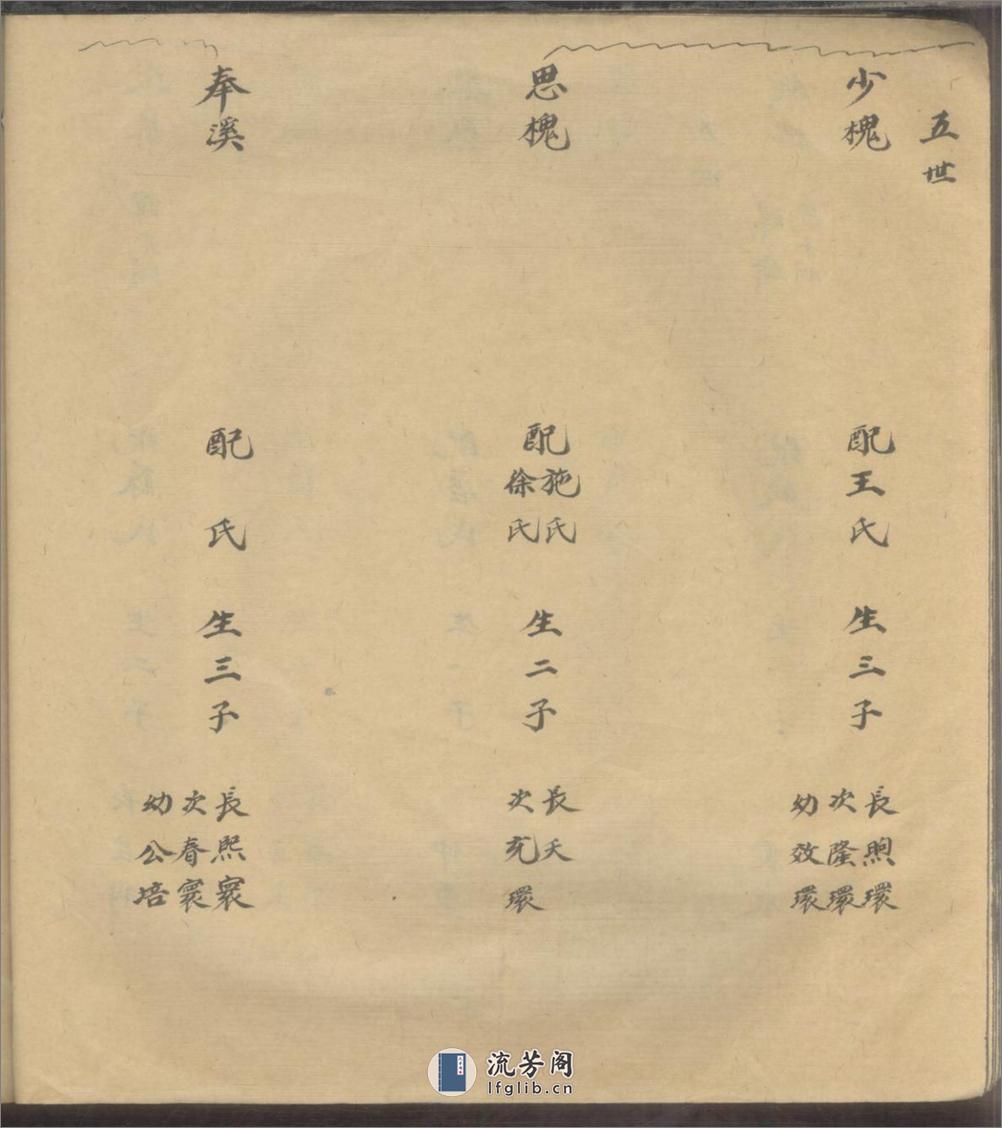 五世
少槐
配王氏
生三子
長煦環
次隆環
幼效環
思槐
配施氏
徐氏
生二子
長夭
次充環
奉溪
配 氏
生三子
長熙寰
次春寰
幼公培
流芳阁
lfglib.cn